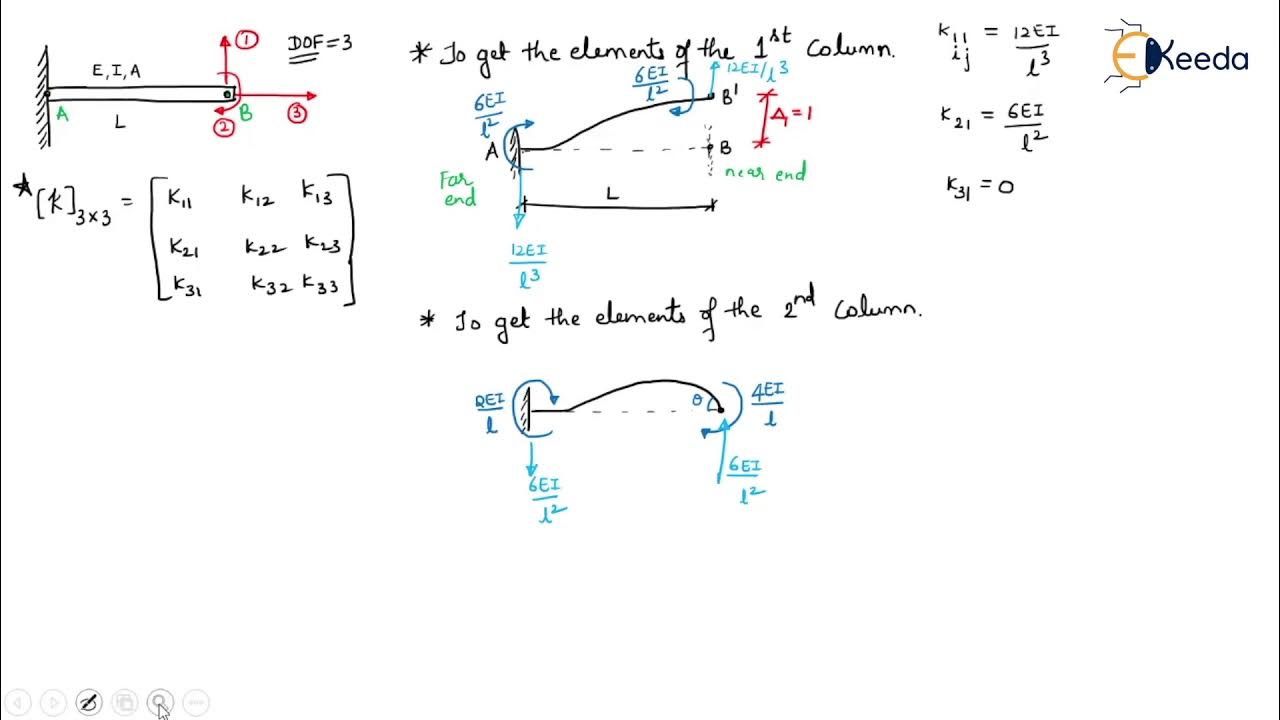 EKeeda
DOF=3
①
E, I, A
A
B
L
②
③
* [K]3×3 = [K11 K12 K13
K21 K22 K23
K31 K32 K33]
* To get the elements of the 1st column.
6EI/l²
12EI/l³
B'
6EI/l²
Δ1=1
A
B
Far end
near end
L
12EI/l³
K11 = 12EI/l³
ij
K21 = 6EI/l²
K31 = 0
* To get the elements of the 2nd column.
2EI/l
θ
4EI/l
6EI/l²
6EI/l²